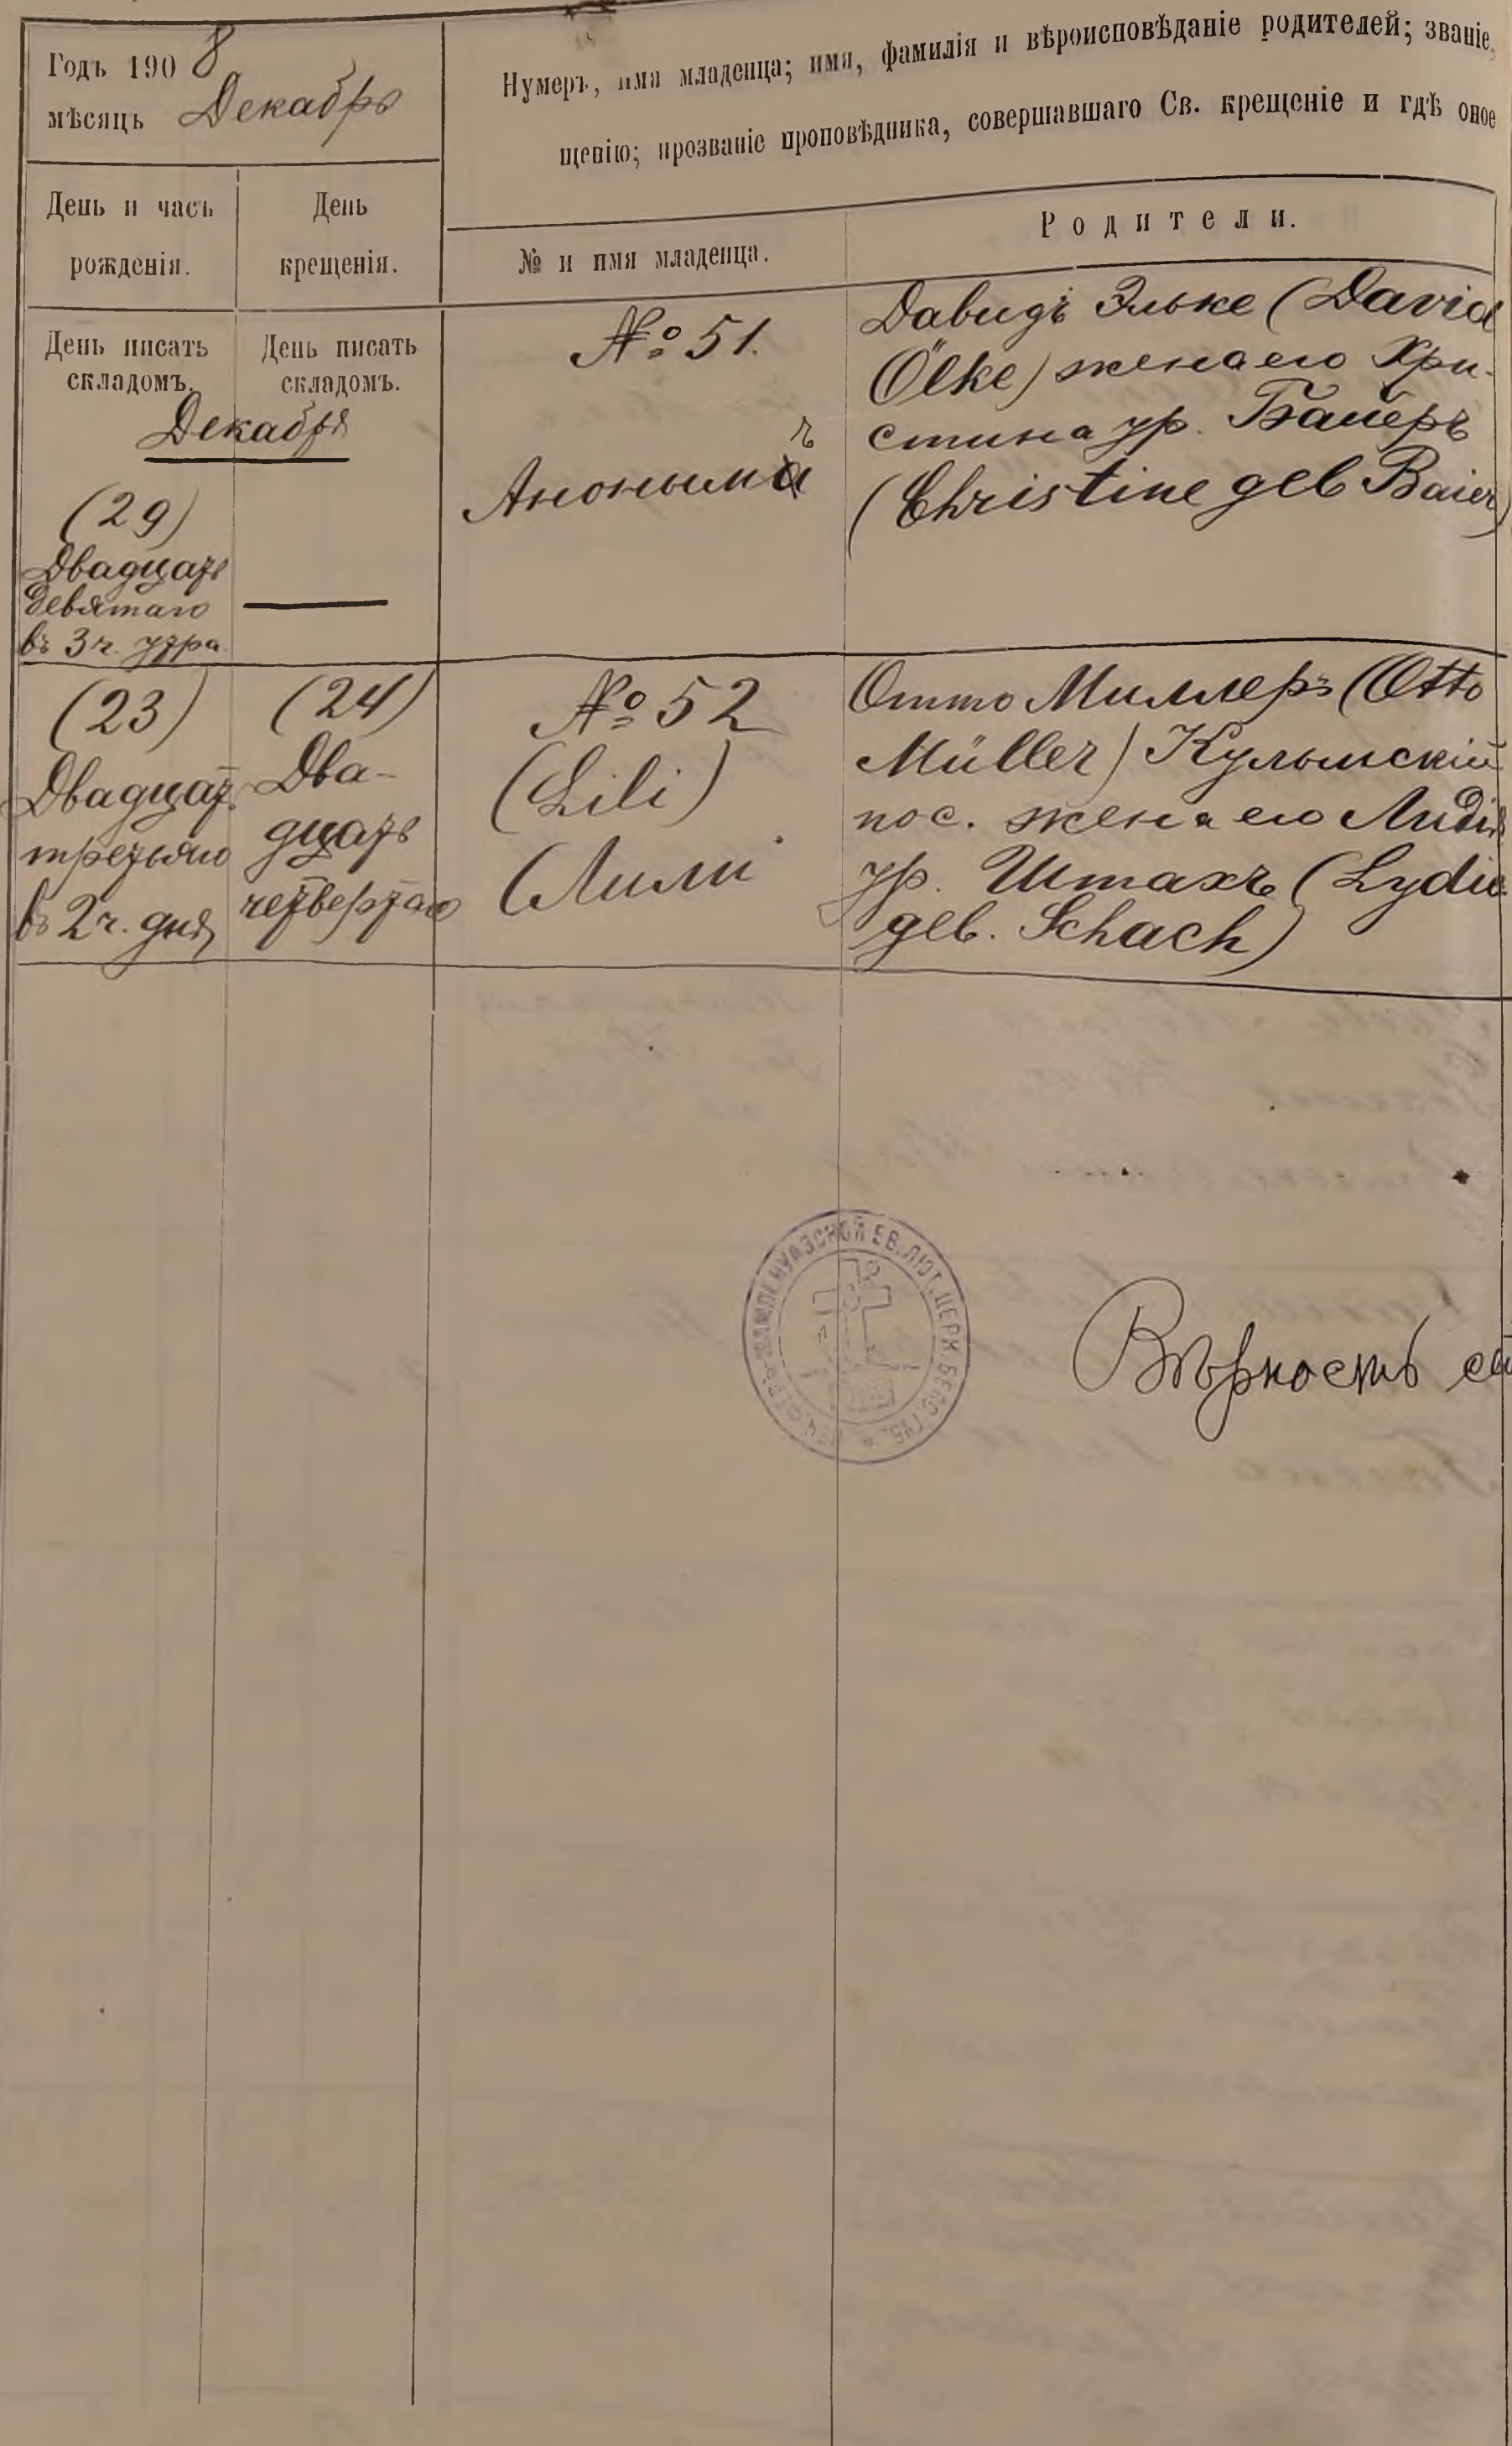 Годъ 1908
мѣсяцъ Декабрь
Нумеръ, имя младенца; имя, фамилія и вѣроисповѣданіе родителей; званіе,
щенію; прозваніе проповѣдника, совершавшаго Св. крещеніе и гдѣ оное
День и часъ
рожденія.
День
крещенія.
№ и имя младенца.
Родители.
День писать
складомъ.
День писать
складомъ.
Декабря
(29)
Двадцать
девятаго
въ 3 ч. утра
№ 51.
ъ
Анонима
Давидъ Эльке (David
Ölke) жена его Хри-
стина ур. Байеръ
(Christine geb Baier)
(23)
Двадцат.
третьяго
въ 2 ч. дня
(24)
Два-
дцать
четвертаго
№ 52
(Lili)
(Лили
Отто Миллеръ (Otto
Müller) Кульмскій
пос. жена его Лидія
ур. Штахъ (Lydie
geb. Schach)
ЕВ. ЛЮТ. ЦЕРК. БЕСС. ГУБ.
Вѣрность